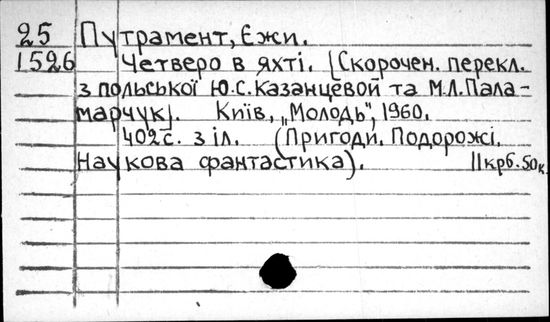 25 Путрамент, Єжи.
1526 Четверо в яхті. [Скорочен. перекл.
з польської Ю.С.Казанцевой та М.Л.Пала-
марчук]. Київ, „Молодь", 1960.
402с. з іл. (Пригоди. Подорожі.
Наукова фантастика). 11крб.50к.